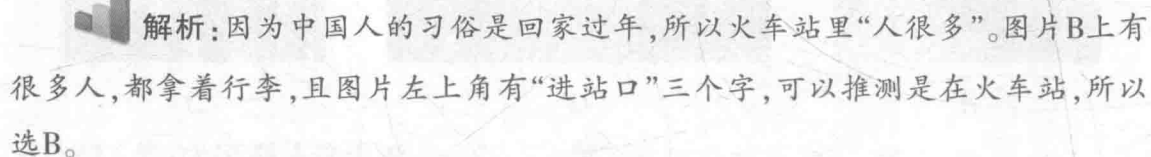 解析:因为中国人的习俗是回家过年,所以火车站里“人很多”。图片B上有
很多人,都拿着行李,且图片左上角有“进站口”三个字,可以推测是在火车站,所以
选B。